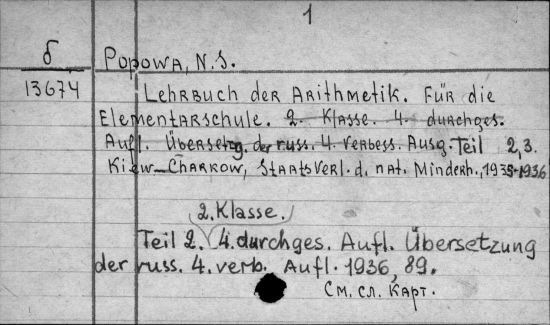 1
б
13674
Popowa, N.S.
Lehrbuch der Arithmetik. Für die
Elementarschule. 2. Klasse. 4. durchges.
Aufl. Übersetzg. der russ. 4. verbess. Ausg. Teil 2,3.
Kiew-Charkow, Staatsverl. d. nat. Minderh., 1935-1936
2. Klasse.
Teil 2. 4. durchges. Aufl. Übersetzung
der russ. 4. verb. Aufl. 1936, 89.
См. сл. карт.